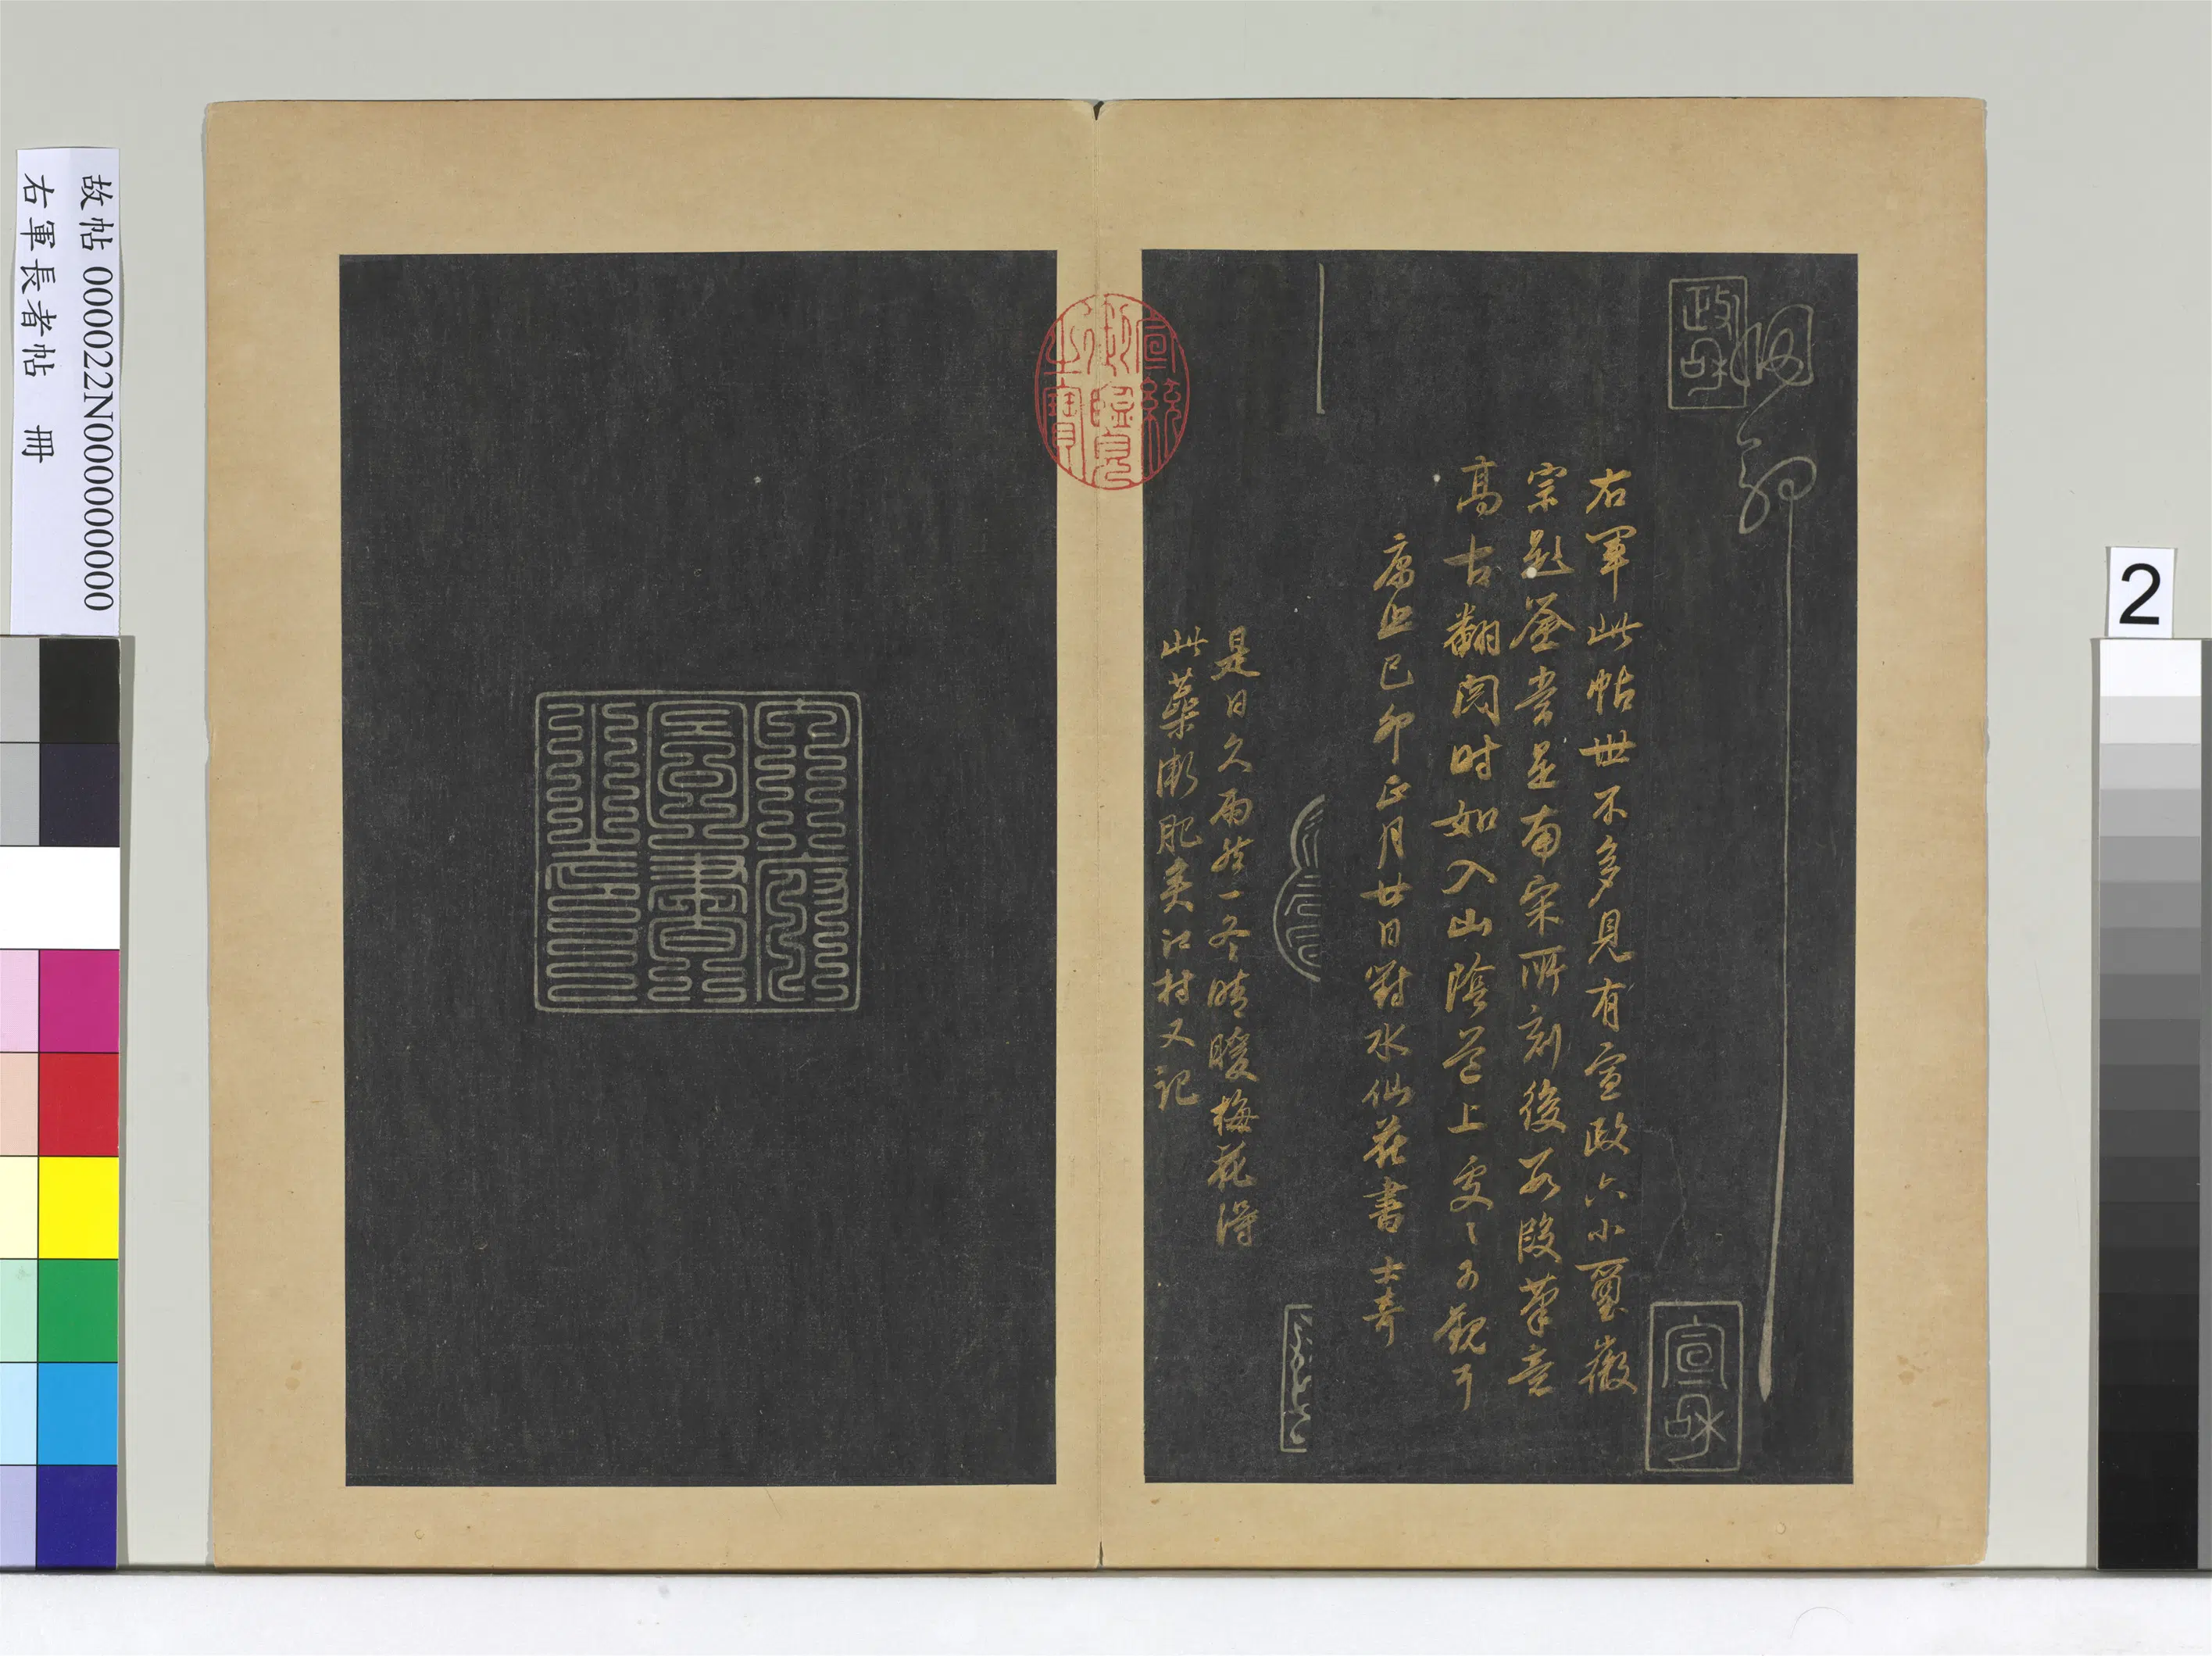 政和
右軍此帖世不多見有宣政六小璽徽
宗題簽當是南宋所刻後段筆意
高古翻閱時如入山陰道上處〻可觀
康熙己卯正月廿日對水仙花書 士奇
是日久雨一冬晴暖梅花得
此蘂漸肥矣江村又記
宣和
宣統御覽之寶
內府圖書之印
故帖 000022N000000000
右軍長者帖 冊
2